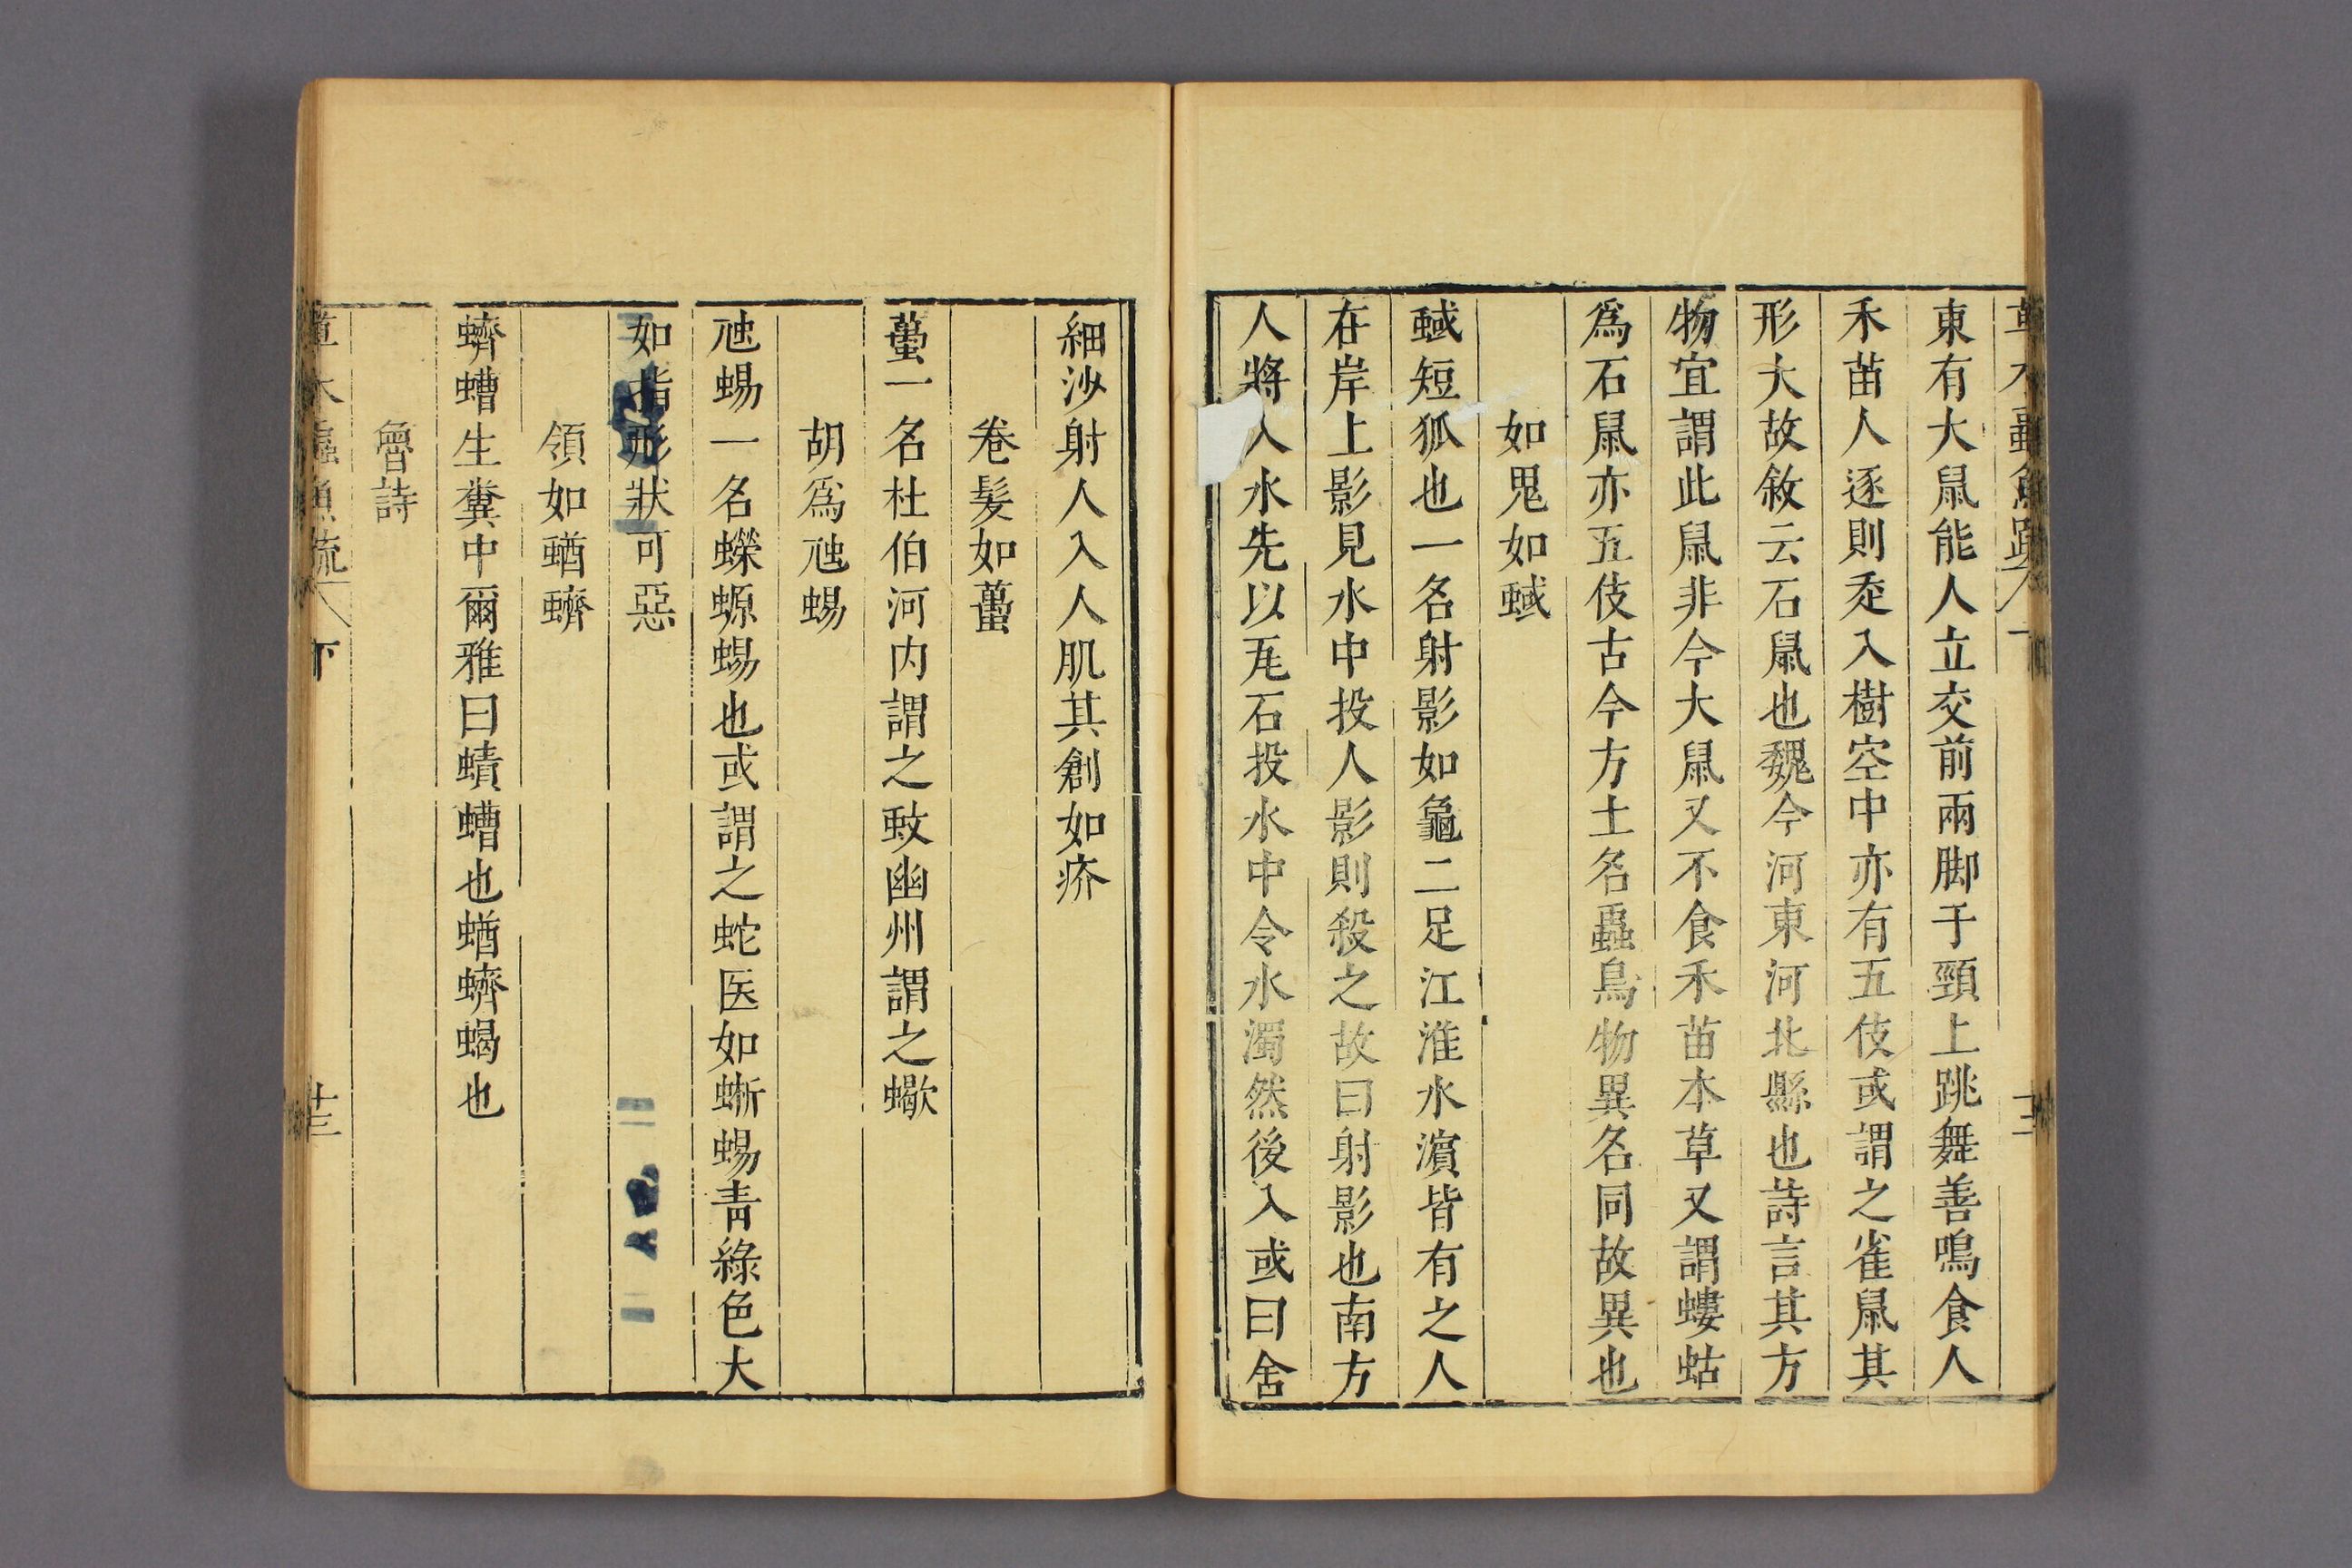 東有大鼠能人立交前兩脚于頸上跳舞善鳴食人
禾苗人逐則走入樹空中亦有五伎或謂之雀鼠其
形大故敘云石鼠也魏今河東河北縣也詩言其方
物宜謂此鼠非今大鼠又不食禾苗本草又謂螻蛄
爲石鼠亦五伎古今方土名蟲鳥物異名同故異也
如鬼如蜮
蜮短狐也一名射影如龜二足江淮水濵皆有之人
在岸上影見水中投人影則殺之故曰射影也南方
人將入水先以瓦石投水中令水濁然後入或曰含
細沙射人入人肌其創如疥
卷髮如蠆
蠆一名杜伯河内謂之䖣幽州謂之蠍
胡爲虺蜴
虺蜴一名蠑螈蜴也或謂之蛇医如蜥蜴青綠色大
如指形狀可惡
領如蝤蠐
蠐螬生糞中爾雅曰蟦螬也蝤蠐蝎也
魯詩
草木蟲魚疏 下 廿三